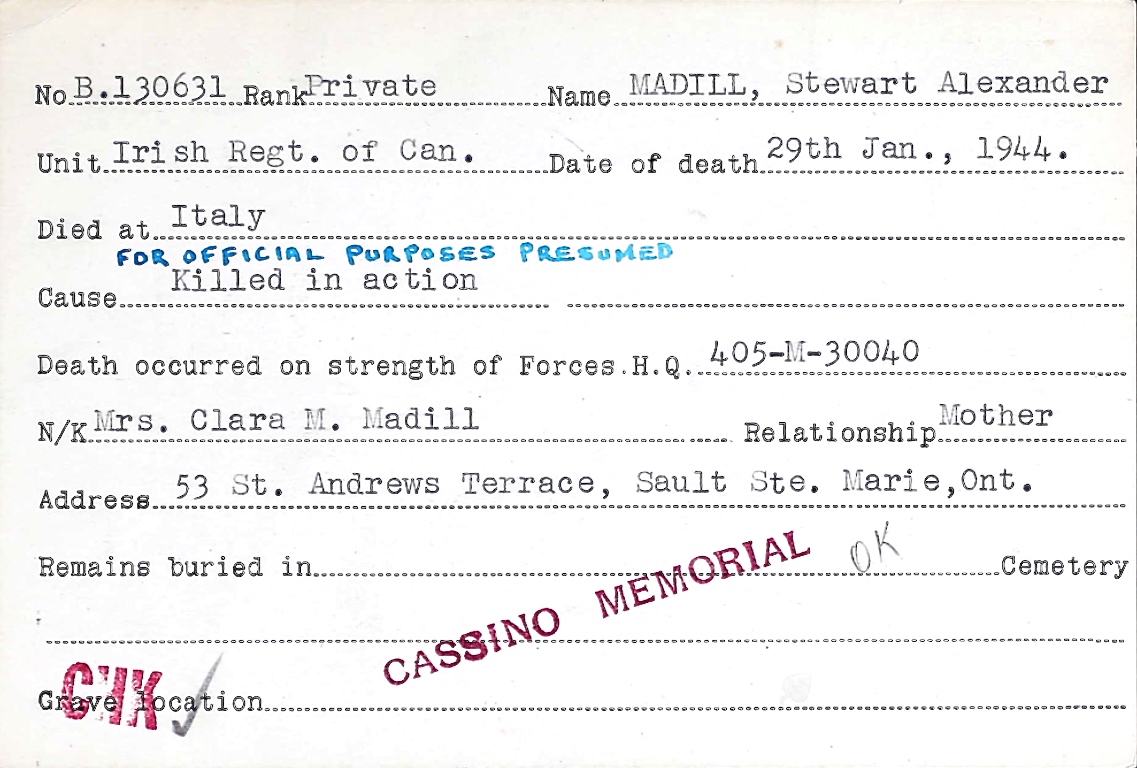 No B.130631 Rank Private Name MADILL, Stewart Alexander
Unit Irish Regt. of Can. Date of death 29th Jan., 1944.
Died at Italy
FOR OFFICIAL PURPOSES PRESUMED
Cause Killed in action
Death occurred on strength of Forces.H.Q. 405-M-30040
N/K Mrs. Clara M. Madill Relationship Mother
Address 53 St. Andrews Terrace, Sault Ste. Marie,Ont.
Remains buried in OK Cemetery
CASSINO MEMORIAL
CHK
Grave location